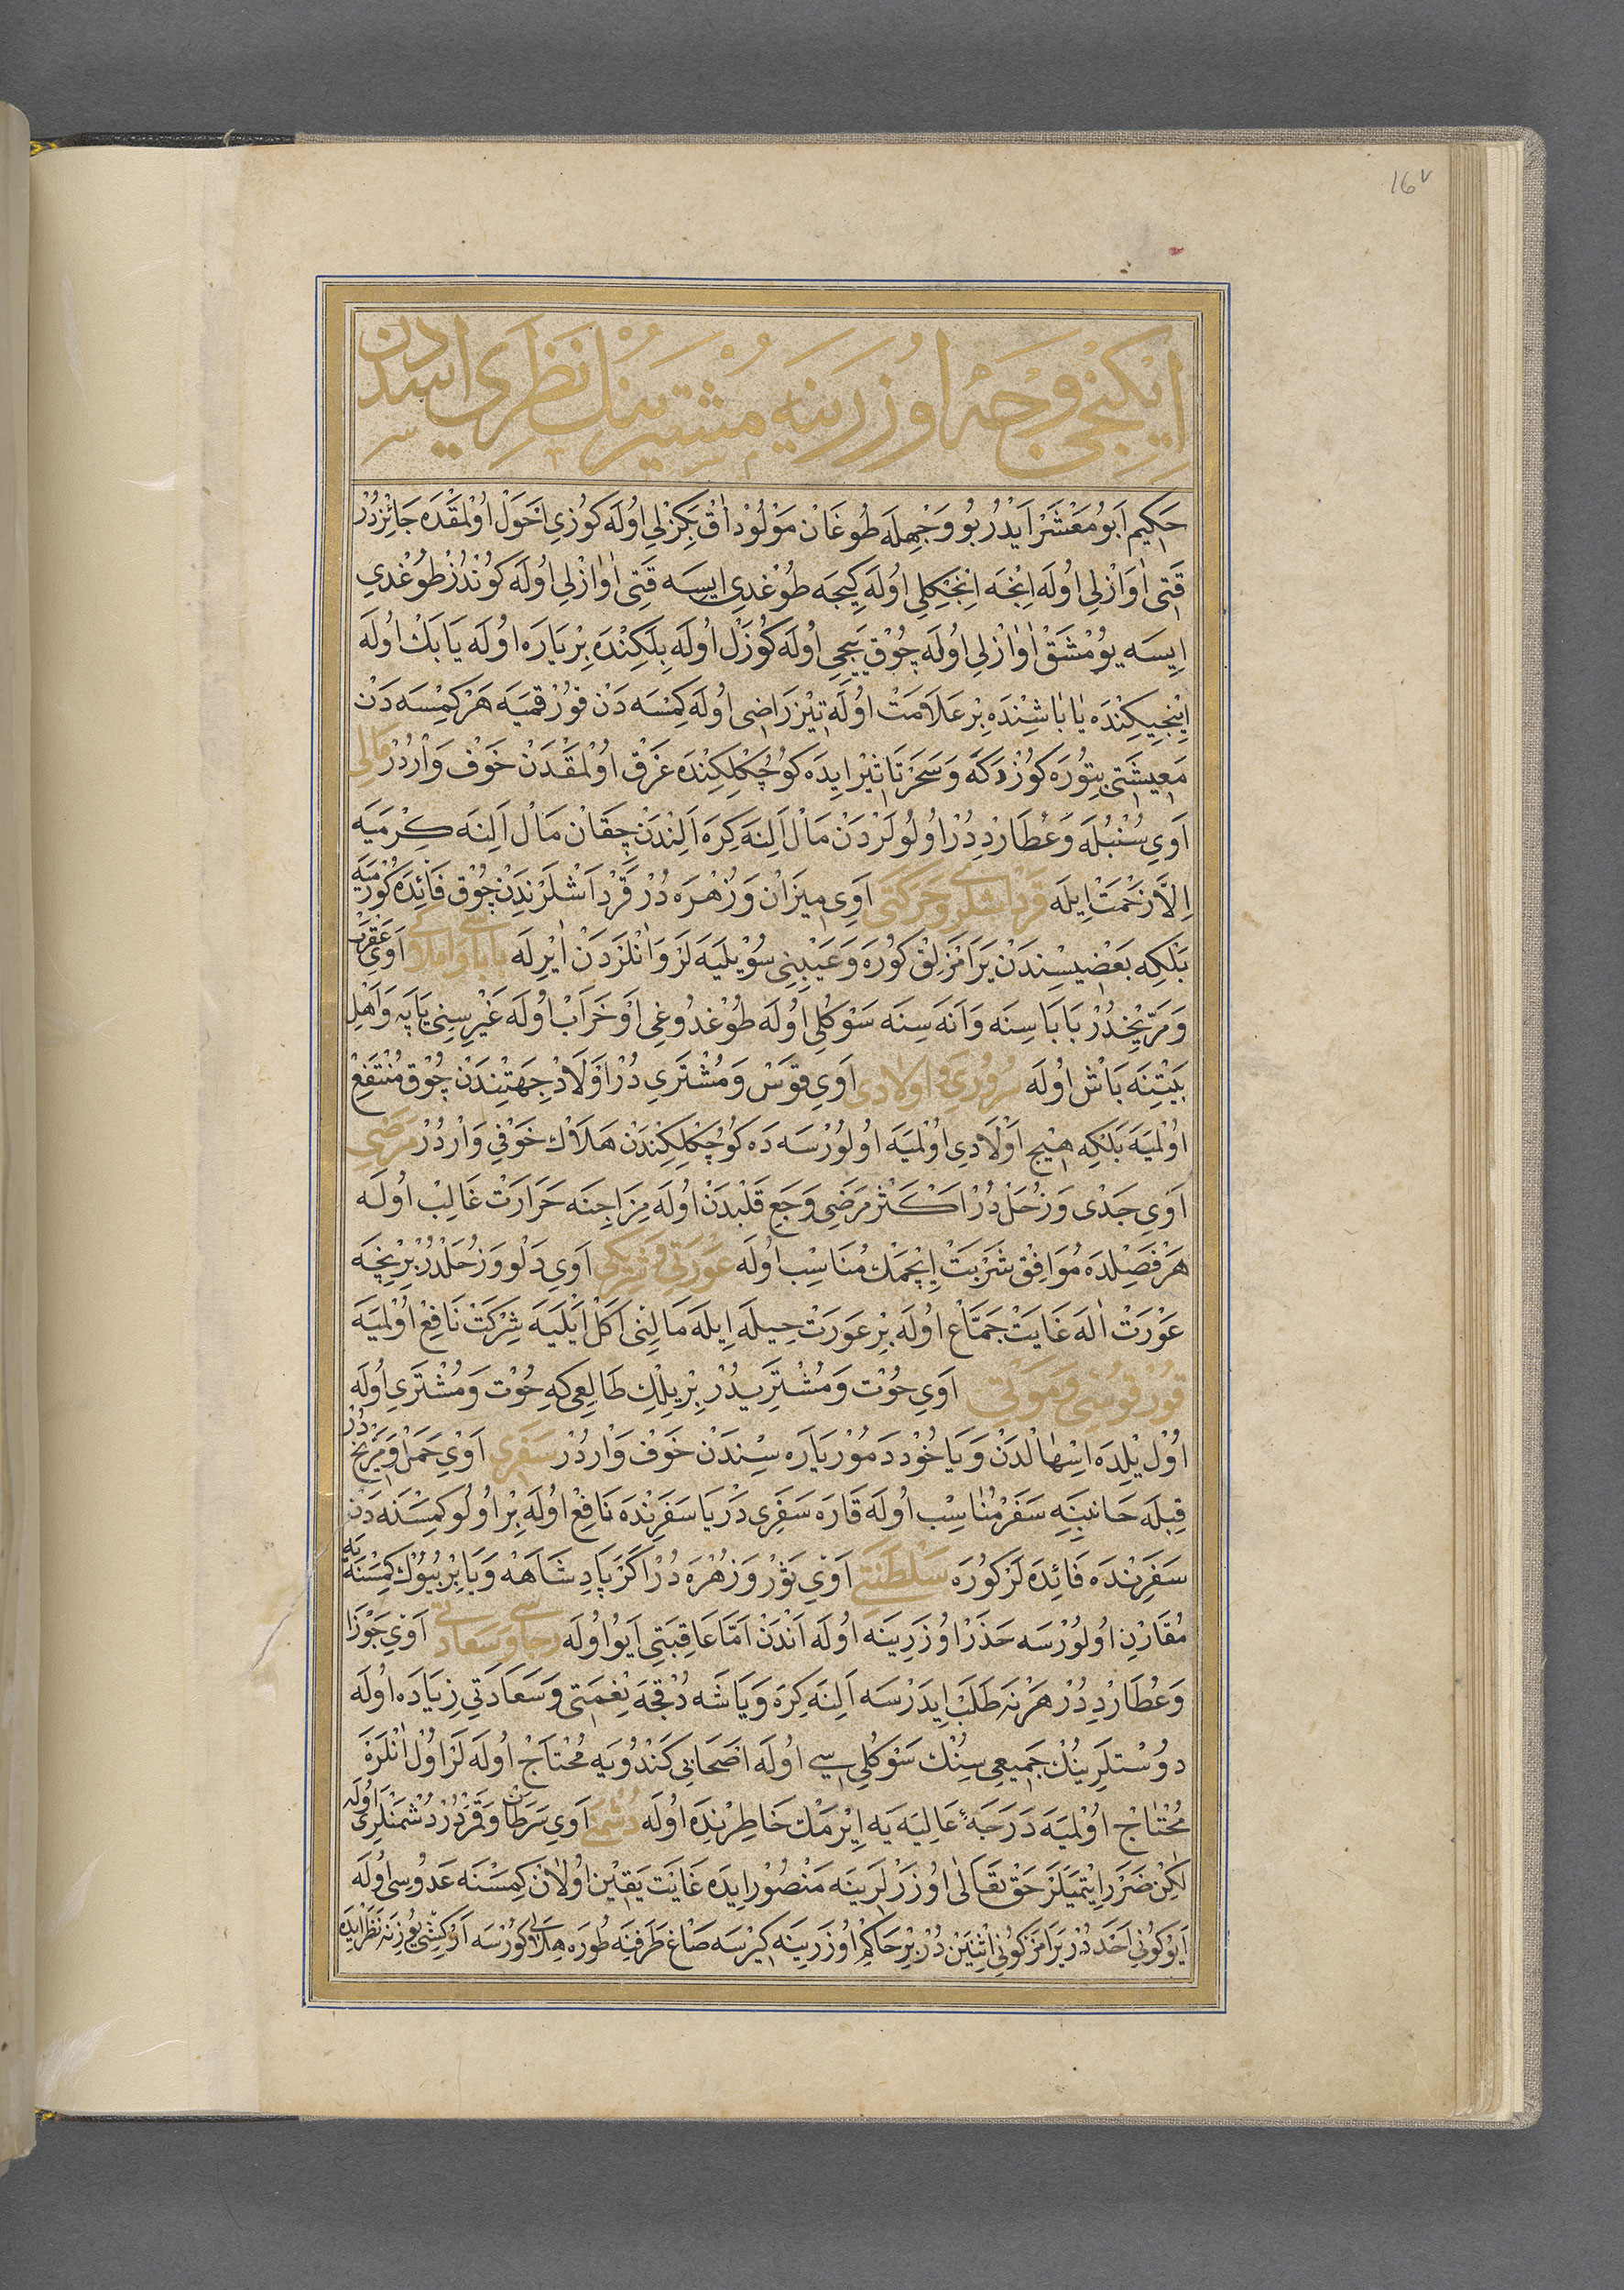 16v
ايكنجی وجه اوزرینه مشترينك نظری اسددن
حكيم ابو معشر ايدر بو وجهله طوغان مولود اق بكزلی اوله كوزی احول اولمقده جائزدر
قتی اوازلی اوله انجه انجكلی اوله كيجه طوغدی ايسه قتی اوازلی اوله كوندز طوغدی
ايسه يومشق اوازلی اوله چوق ييجی اوله كوزل اوله بلكنده بر ياره اوله يا بك اوله
اينجيكنده يا باشنده بر علامت اوله تيز راضی اوله كمسه دن قورقميه هر كمسه دن
معيشتی بتوره كوزدكه و سحر تاثير ايده كوچكلكنده غرق اولمقدن خوف واردر مالی
اوی سنبله و عطارددر اولولردن مال النه كره الندن چقان مال النه كرميه
الا زحمت ايله قرداشلری و حركتی اوی ميزان و زهره در قرداشلرندن چوق فائده كورميه
بلكه بعضيسندن يرامزلق كوره و عيبنی سويليه لر و انلردن ايرله باباسی و املاكی اوی عقرب
و مريخدر باباسنه و اناسنه سوكلی اوله طوغدوغی او خراب اوله غيرسنی ياپه و اهل
بيتنه باش اوله سروری و اولادی اوی قوس و مشتری در اولاد جهتندن چوق منتفع
اولميه بلكه هيچ اولادی اولميه اولورسه ده كوچكلكندن هلاك خوفی واردر مرضی
اوی جدی و زحل در اكثر مرضی وجع قلبدن اوله مزاجنه حرارت غالب اوله
هر فصلده موافق شربت ايچمك مناسب اوله عورتی و شريكی اوی دلو و زحلدر بر نيچه
عورت اله غايت جماع اوله بر عورت حيله ايله مالنی اكل ايليه شركت نافع اولميه
قورقوسی و موتی اوی حوت و مشتريدر بر ييلك طالعی كه حوت و مشتری اوله
اول يلده اسهالدن و ياخود دمور ياره سندن خوف واردر سفری اوی حمل و مريخ در
قبله جانبنه سفر مناسب اوله قاره سفری دريا سفرنده نافع اوله بر اولو كمسنه دن
سفرنده فائده لر كوره سلطنتی اوی ثور و زهره در اكر پادشاهه و يا بر بيوك كمسنه يه
مقارن اولورسه حذر اوزرينه اوله اندن اما عاقبتی ايو اوله رجاسی و سعادتی اوی جوزا
و عطارددر هر نه طلب ايدرسه النه كره و ياشه دقجه نعمتی و سعادتی زياده اوله
دوستلرينك جميعی سنك سوكليسی اوله اصحابی كندويه محتاج اوله لر اول انلره
محتاج اولميه درجۀ عاليه يه ايرمك خاطرنده اوله دشمنی اوی سرطان و قمردر دشمنلری اوله
لكن ضرر ايتميه لر حق تعالی اوزرلرينه منصور ايده غايت يقين اولان كمسنه عدوسی اوله
ايو كونی احد در يرامز كونی اثنين در بر حاكم اوزرينه كيرسه صاغ طرفنه طوره هلالی كورسه ار كشی يوزنه نظر ايده